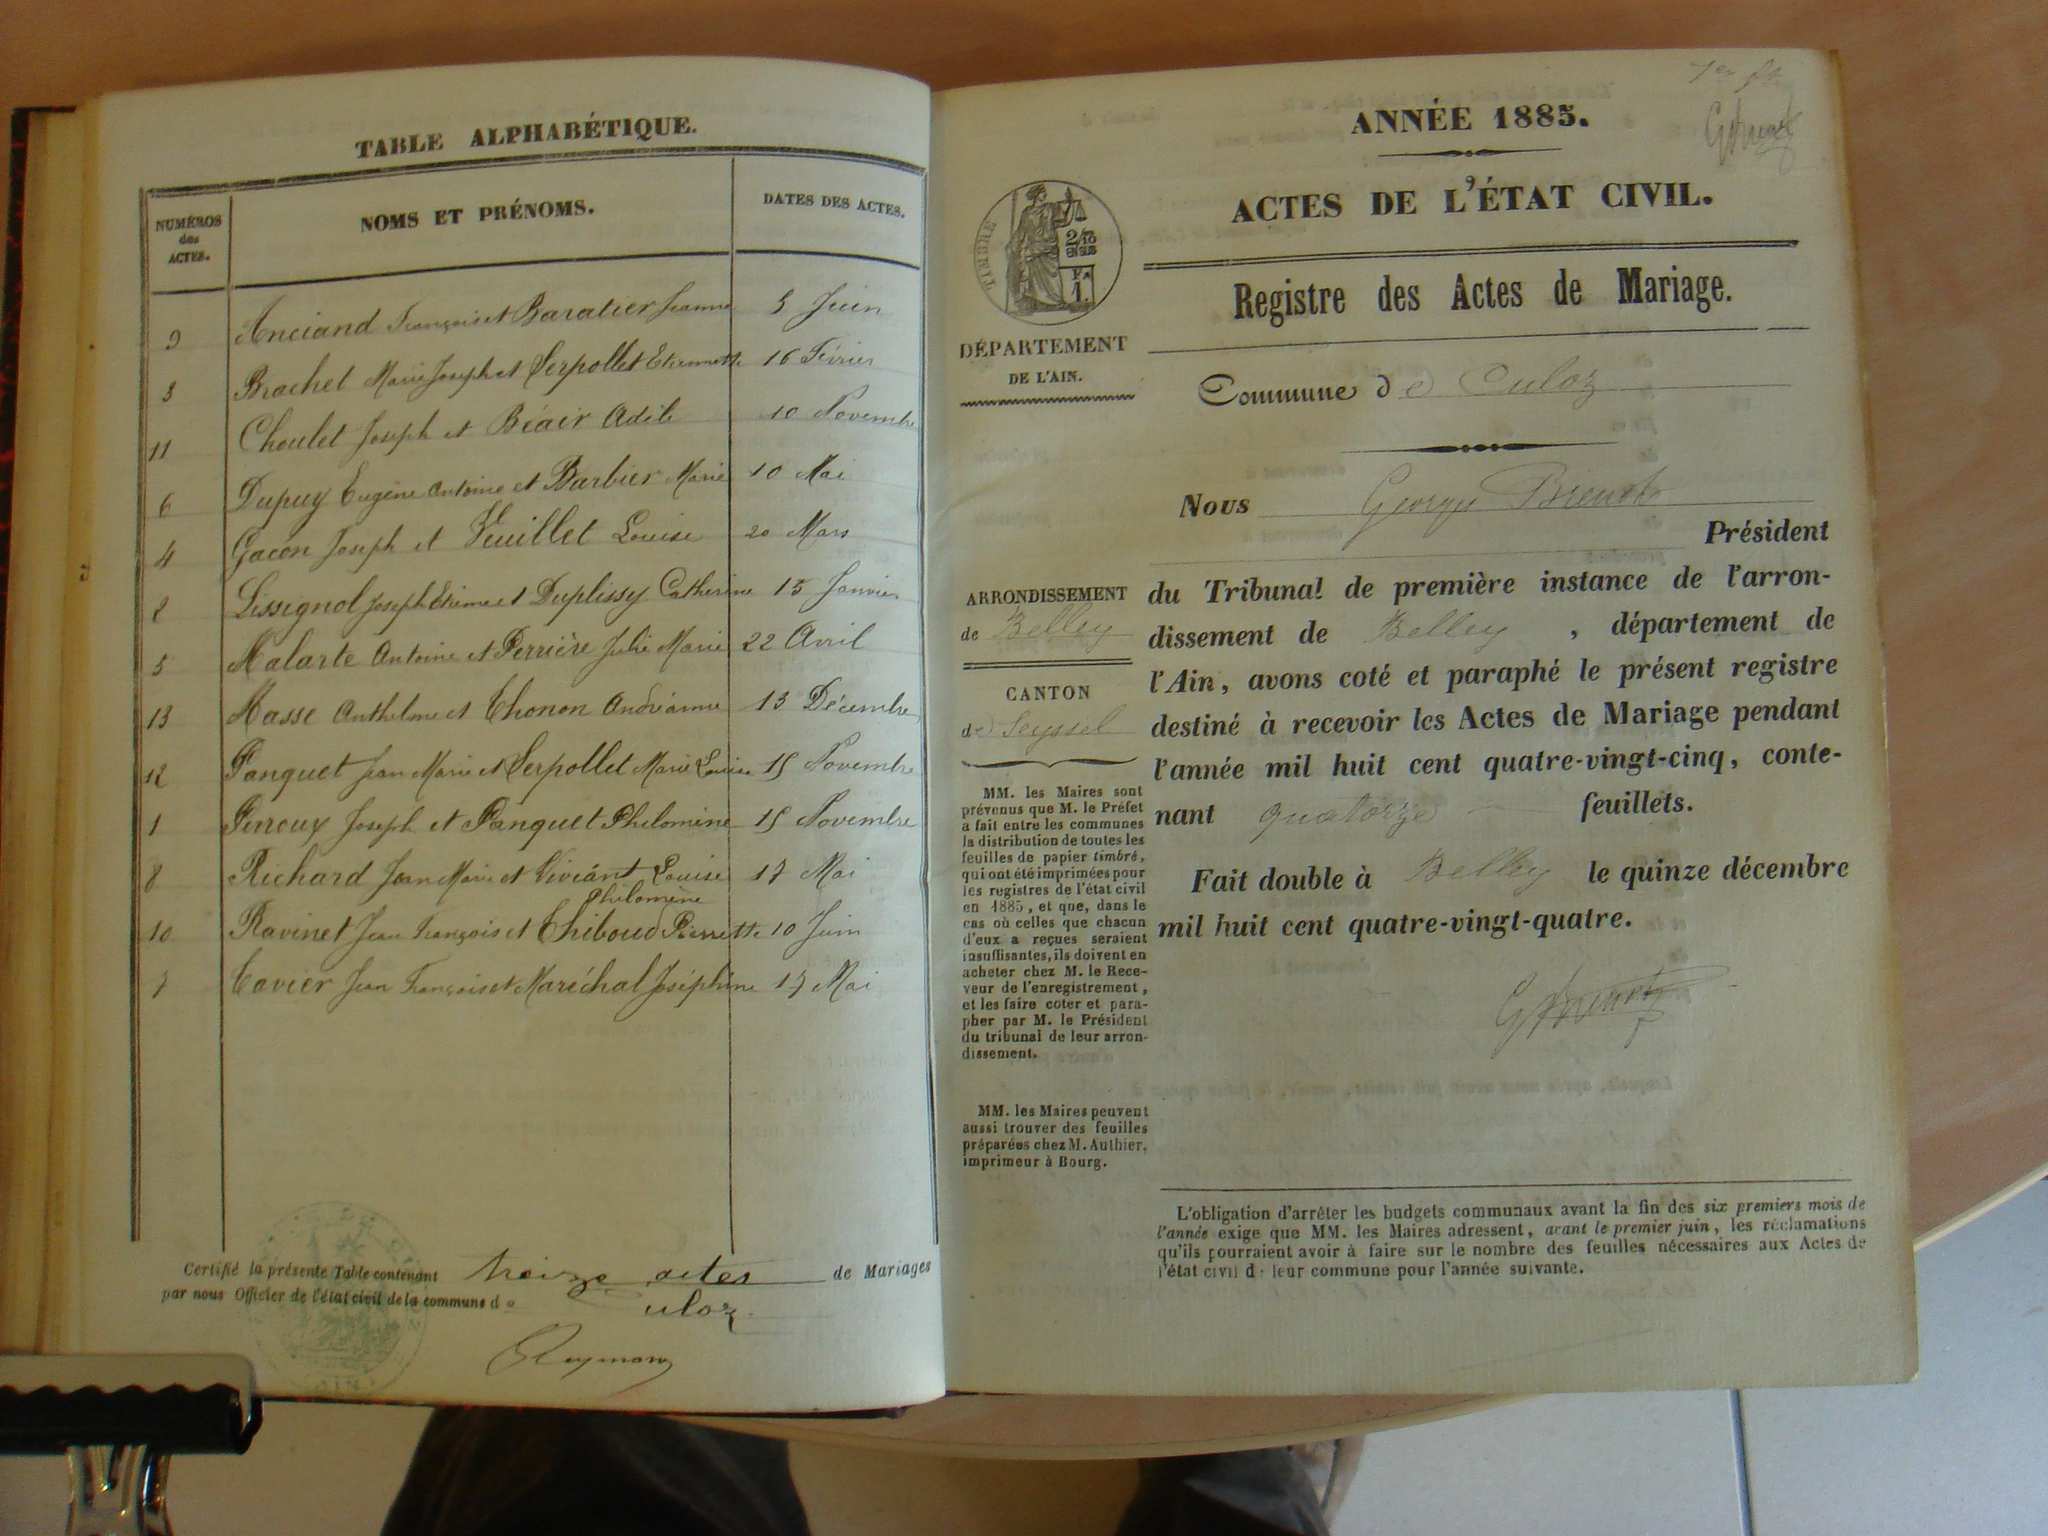 TABLE ALPHABÉTIQUE.
NUMÉROS des ACTES. NOMS ET PRÉNOMS. DATES DES ACTES.
9 Anciand François et Baratier Jeanne 5 Juin
3 Brachet Marie Joseph et Serpollet Etiennette 16 Février
11 Choulet Joseph et Béair Adèle 10 Novembre
6 Dupuy Eugène Antoine et Barbier Marie 10 Mai
4 Gacon Joseph et Vuillet Louise 20 Mars
2 Lissignol Joseph Etienne et Duplissy Catherine 15 Janvier
5 Malarte Antoine et Perrière Julie Marie 22 Avril
13 Masse Anthelme et Thonon Andréanne 13 Décembre
12 Panquet Jean Marie et Serpollet Marie Louise 15 Novembre
1 Perroux Joseph et Panquet Philomène 15 Novembre
8 Richard Jean Marie et Viviant Louise 17 Mai
Philomène
10 Ravinet Jean François et Thiboud Pierrette 10 Juin
7 Tavier Jean François et Maréchal Joséphine 17 Mai
Certifié la présente Table contenant treize actes de Mariages
par nous Officier de l'état civil de la commune de
Culoz
Reymond
1er
ANNÉE 1885.
ACTES DE L'ÉTAT CIVIL.
TIMBRE
2/10 EN SUS
1.
Registre des Actes de Mariage.
DÉPARTEMENT
DE L'AIN.
Commune de Culoz
Nous Georges Brenot
Président
du Tribunal de première instance de l'arron-
dissement de Belley, département de
l'Ain, avons coté et paraphé le présent registre
destiné à recevoir les Actes de Mariage pendant
l'année mil huit cent quatre-vingt-cinq, conte-
nant quatorze feuillets.
Fait double à Belley le quinze décembre
mil huit cent quatre-vingt-quatre.
ARRONDISSEMENT
de Belley
CANTON
de Seyssel
MM. les Maires sont
prévenus que M. le Préfet
a fait entre les communes
la distribution de toutes les
feuilles de papier timbré,
qui ont été imprimées pour
les registres de l'état civil
en 1885, et que, dans le
cas où celles que chacun
d'eux a reçues seraient
insuffisantes, ils doivent en
acheter chez M. le Rece-
veur de l'enregistrement,
et les faire coter et para-
pher par M. le Président
du tribunal de leur arron-
dissement.
MM. les Maires peuvent
aussi trouver des feuilles
préparées chez M. Authier,
imprimeur à Bourg.
L'obligation d'arrêter les budgets communaux avant la fin des six premiers mois de
l'année exige que MM. les Maires adressent, avant le premier juin, les réclamations
qu'ils pourraient avoir à faire sur le nombre des feuilles nécessaires aux Actes de
l'état civil de leur commune pour l'année suivante.